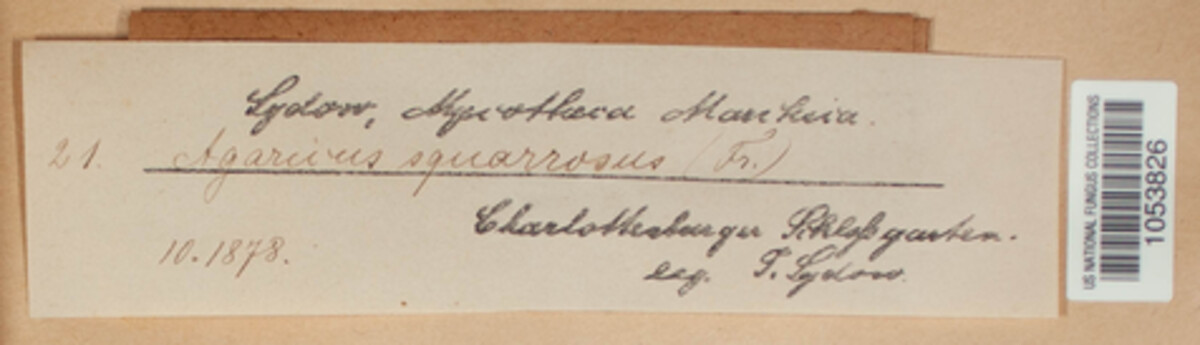 Sydow, Mycotheca Marchica.
21. Agaricus squarrosus (Fr.)
Charlottenburger Schloßgarten.
10.1878.
leg. P. Sydow.
US NATIONAL FUNGUS COLLECTIONS
1053826